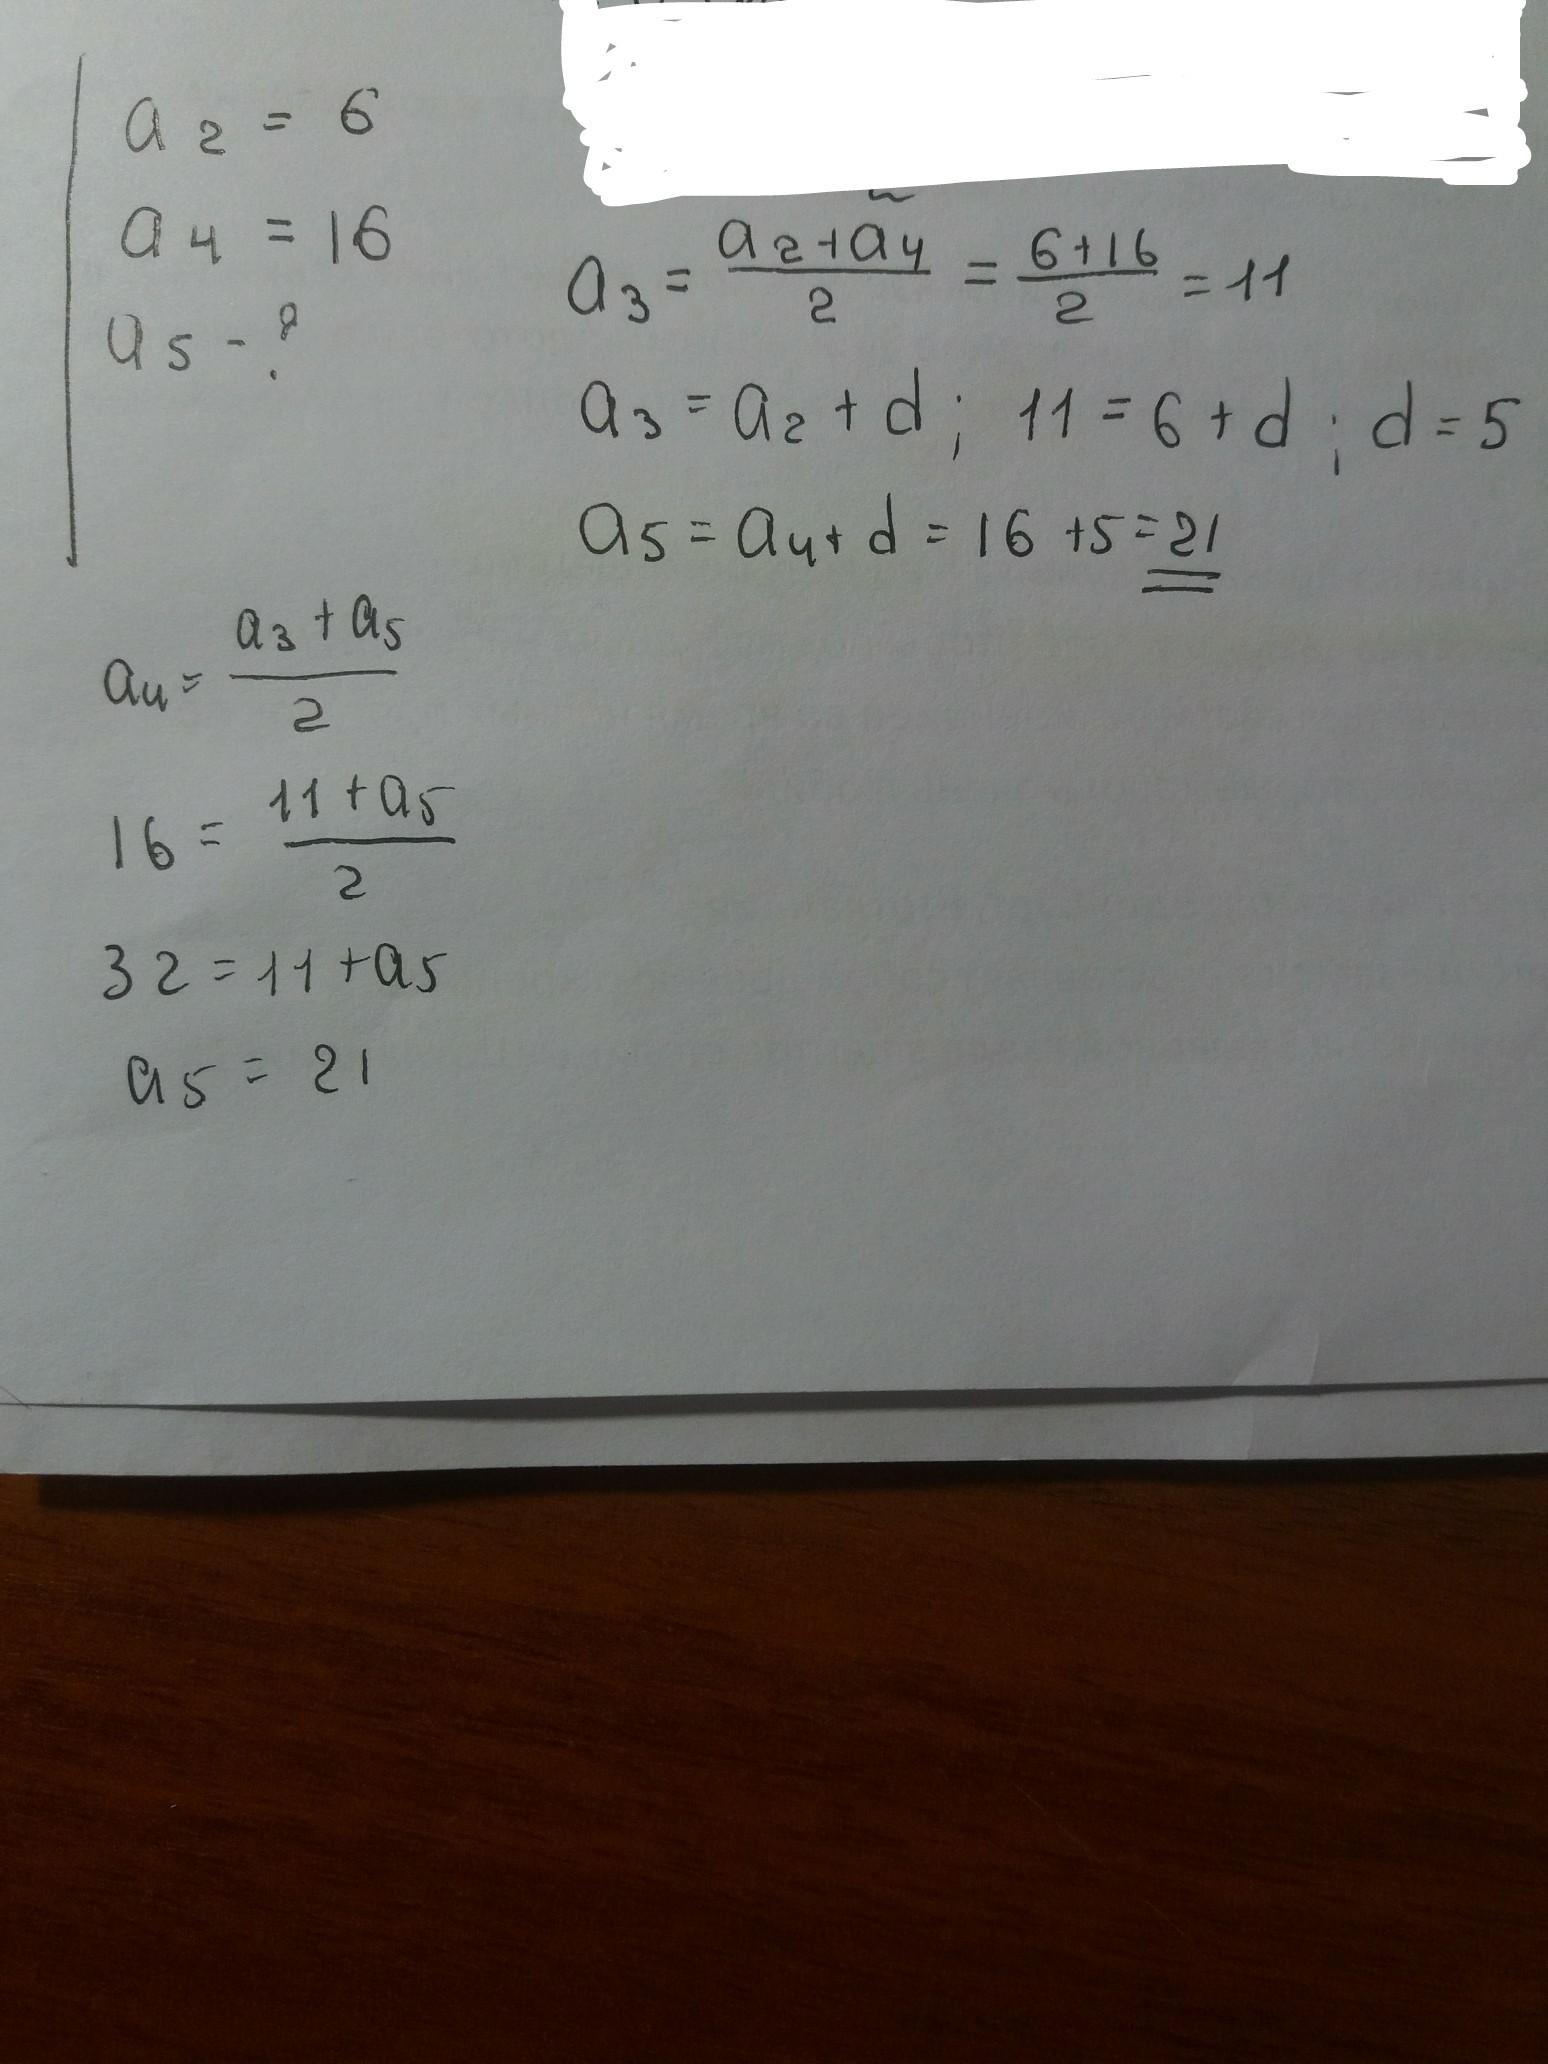 a2 = 6
a4 = 16
a5 - ?
a3 = (a2+a4)/2 = (6+16)/2 = 11
a3 = a2 + d; 11 = 6 + d; d = 5
a5 = a4 + d = 16 + 5 = 21
a4 = (a3 + a5)/2
16 = (11 + a5)/2
32 = 11 + a5
a5 = 21